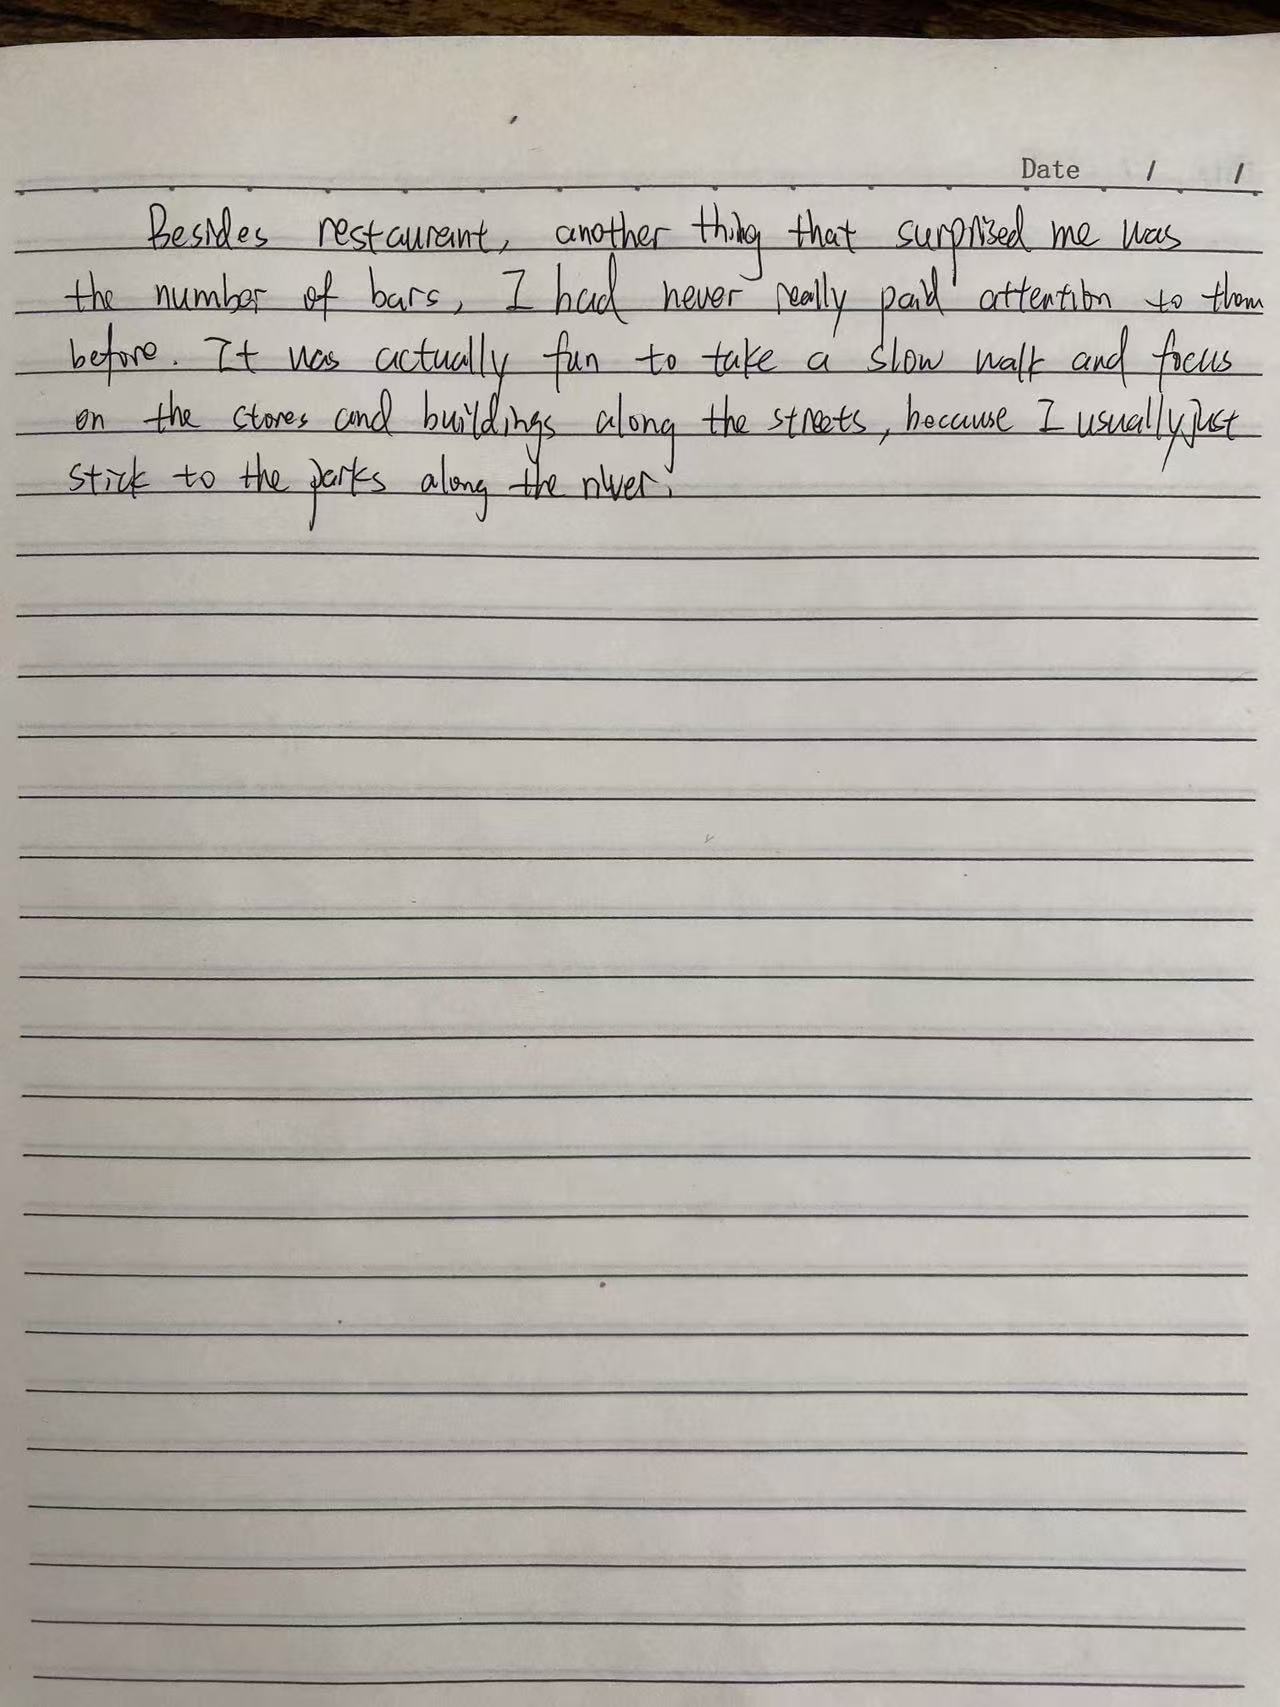 Date / /
Besides restaurant, another thing that surprised me was
the number of bars, I had never really paid attention to them
before. It was actually fun to take a slow walk and focus
on the stores and buildings along the streets, because I usually just
stick to the parks along the river.